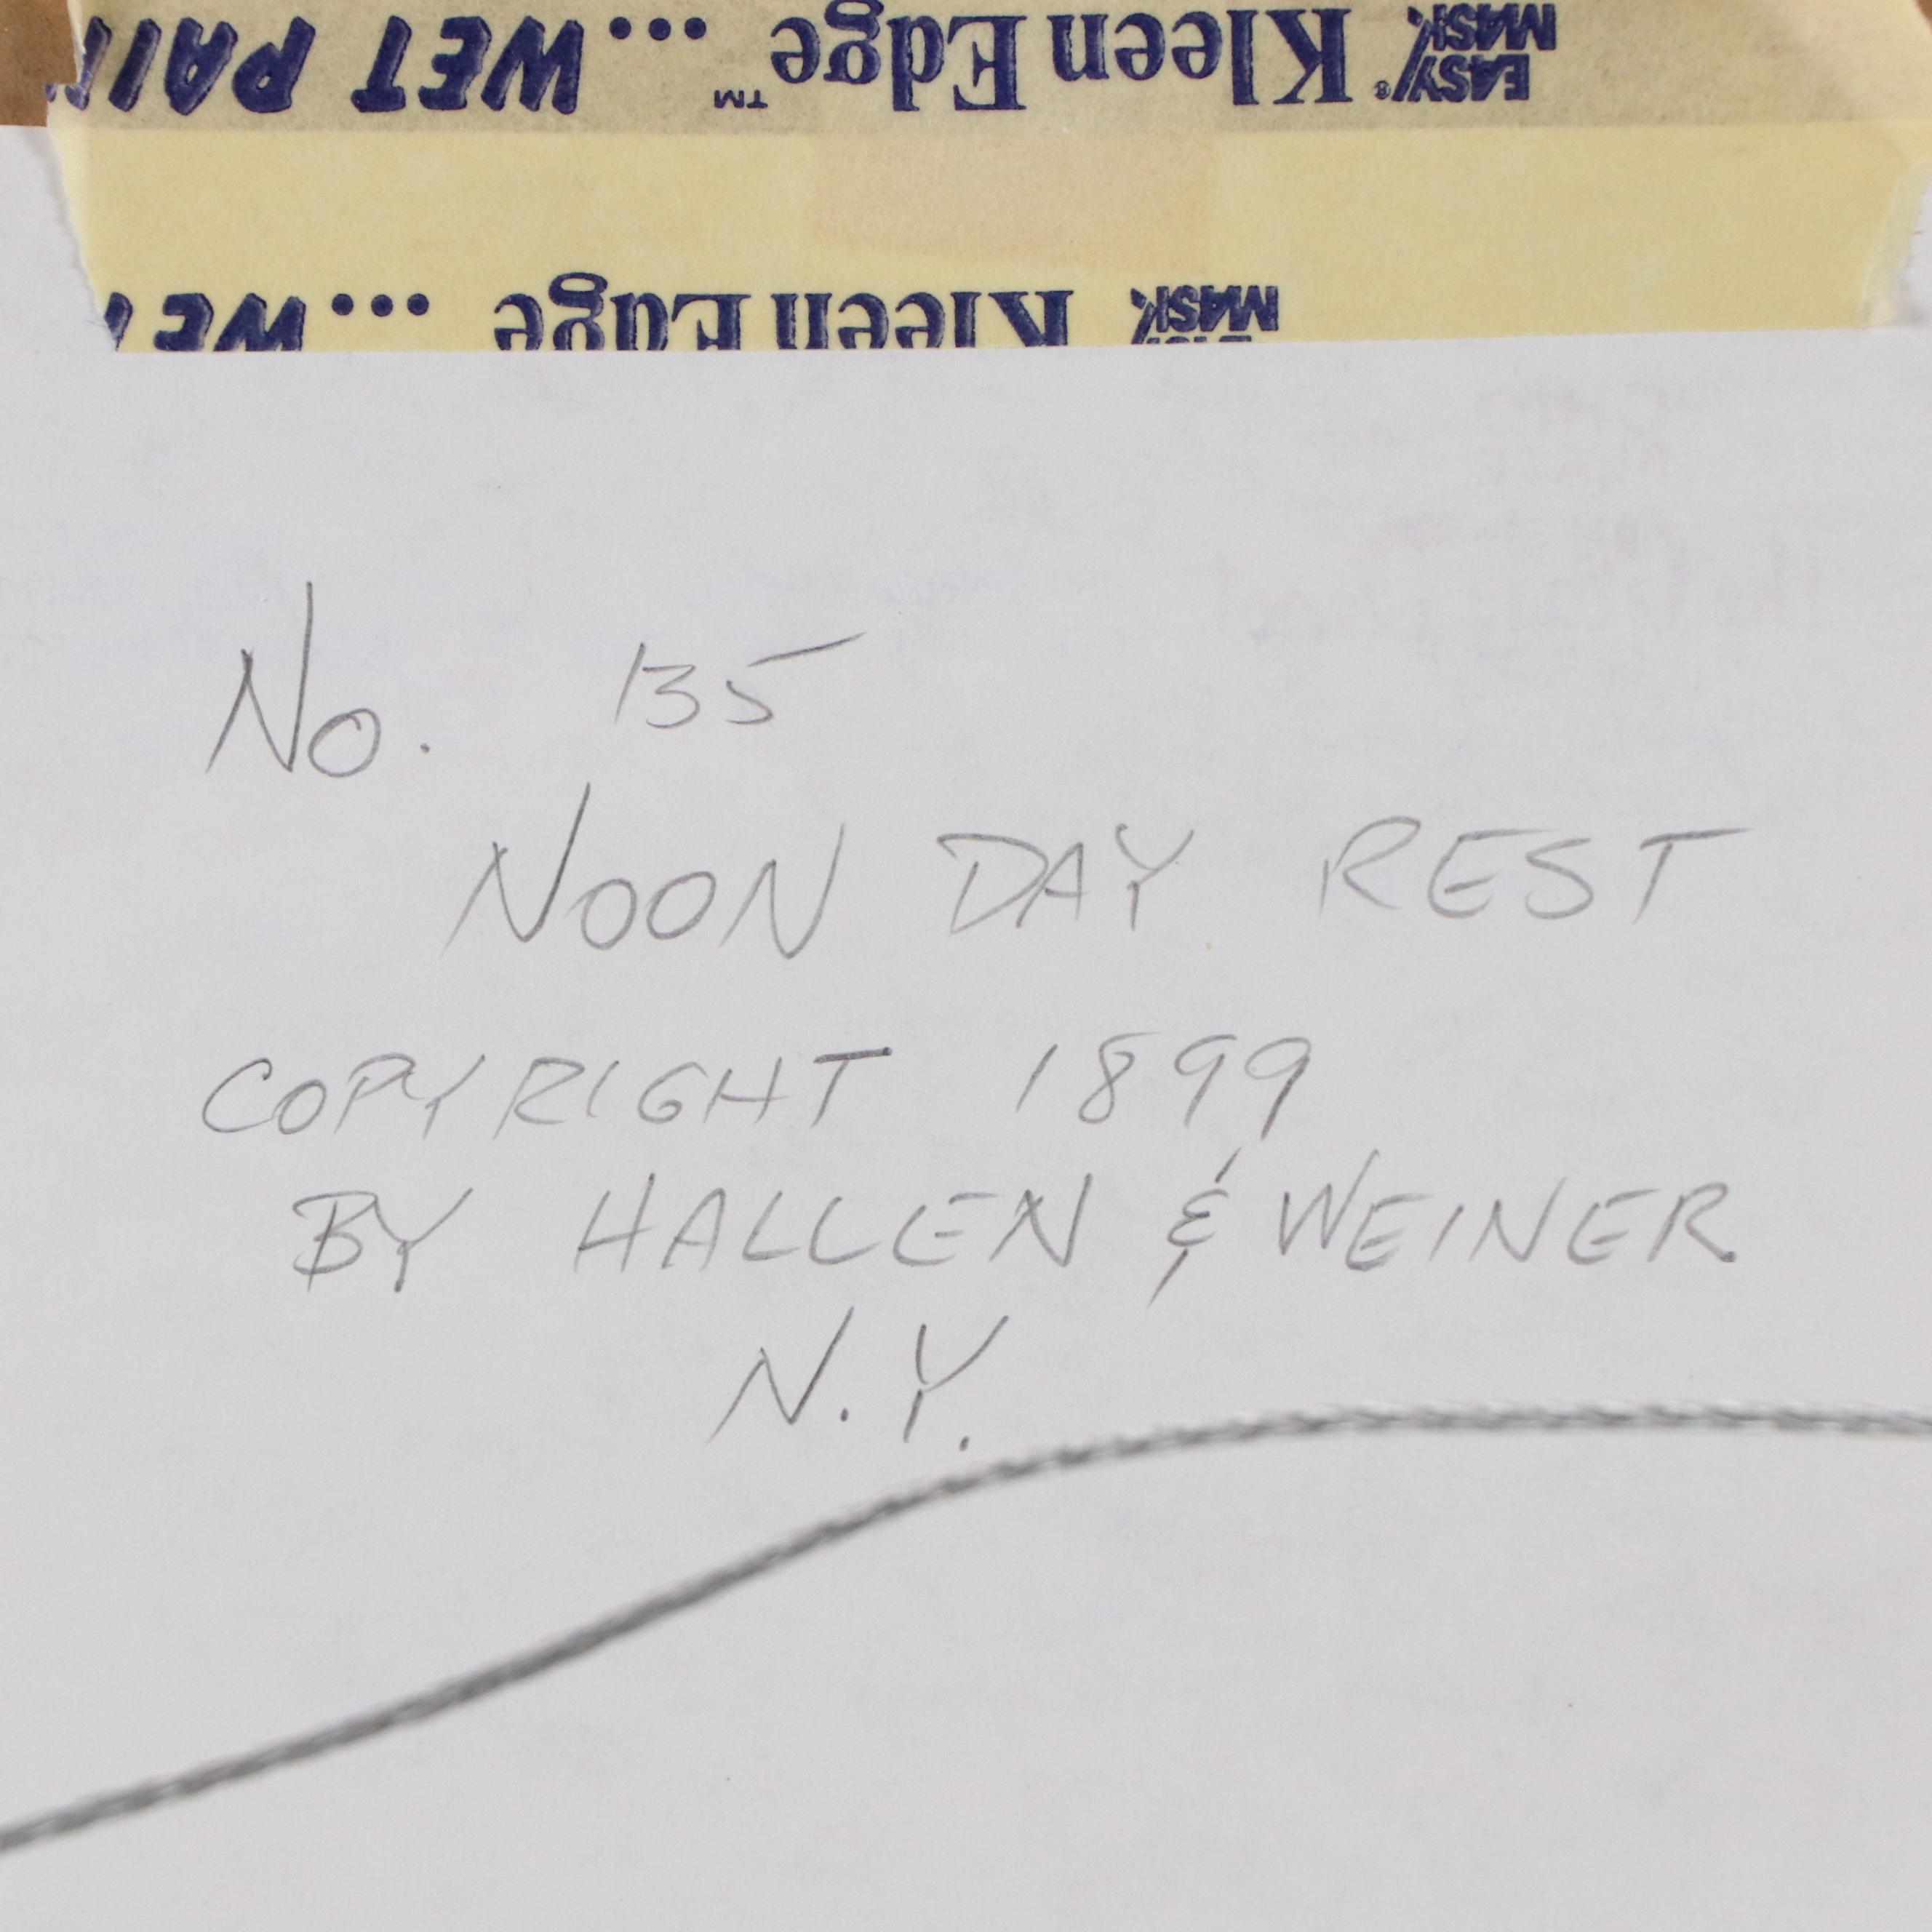 EASY MASK® KleenEdge™ ... WET PAI
MASK KleenEdge ... WE
No. 135
NOON DAY REST
COPYRIGHT 1899
BY HALLEN & WEINER
N.Y.